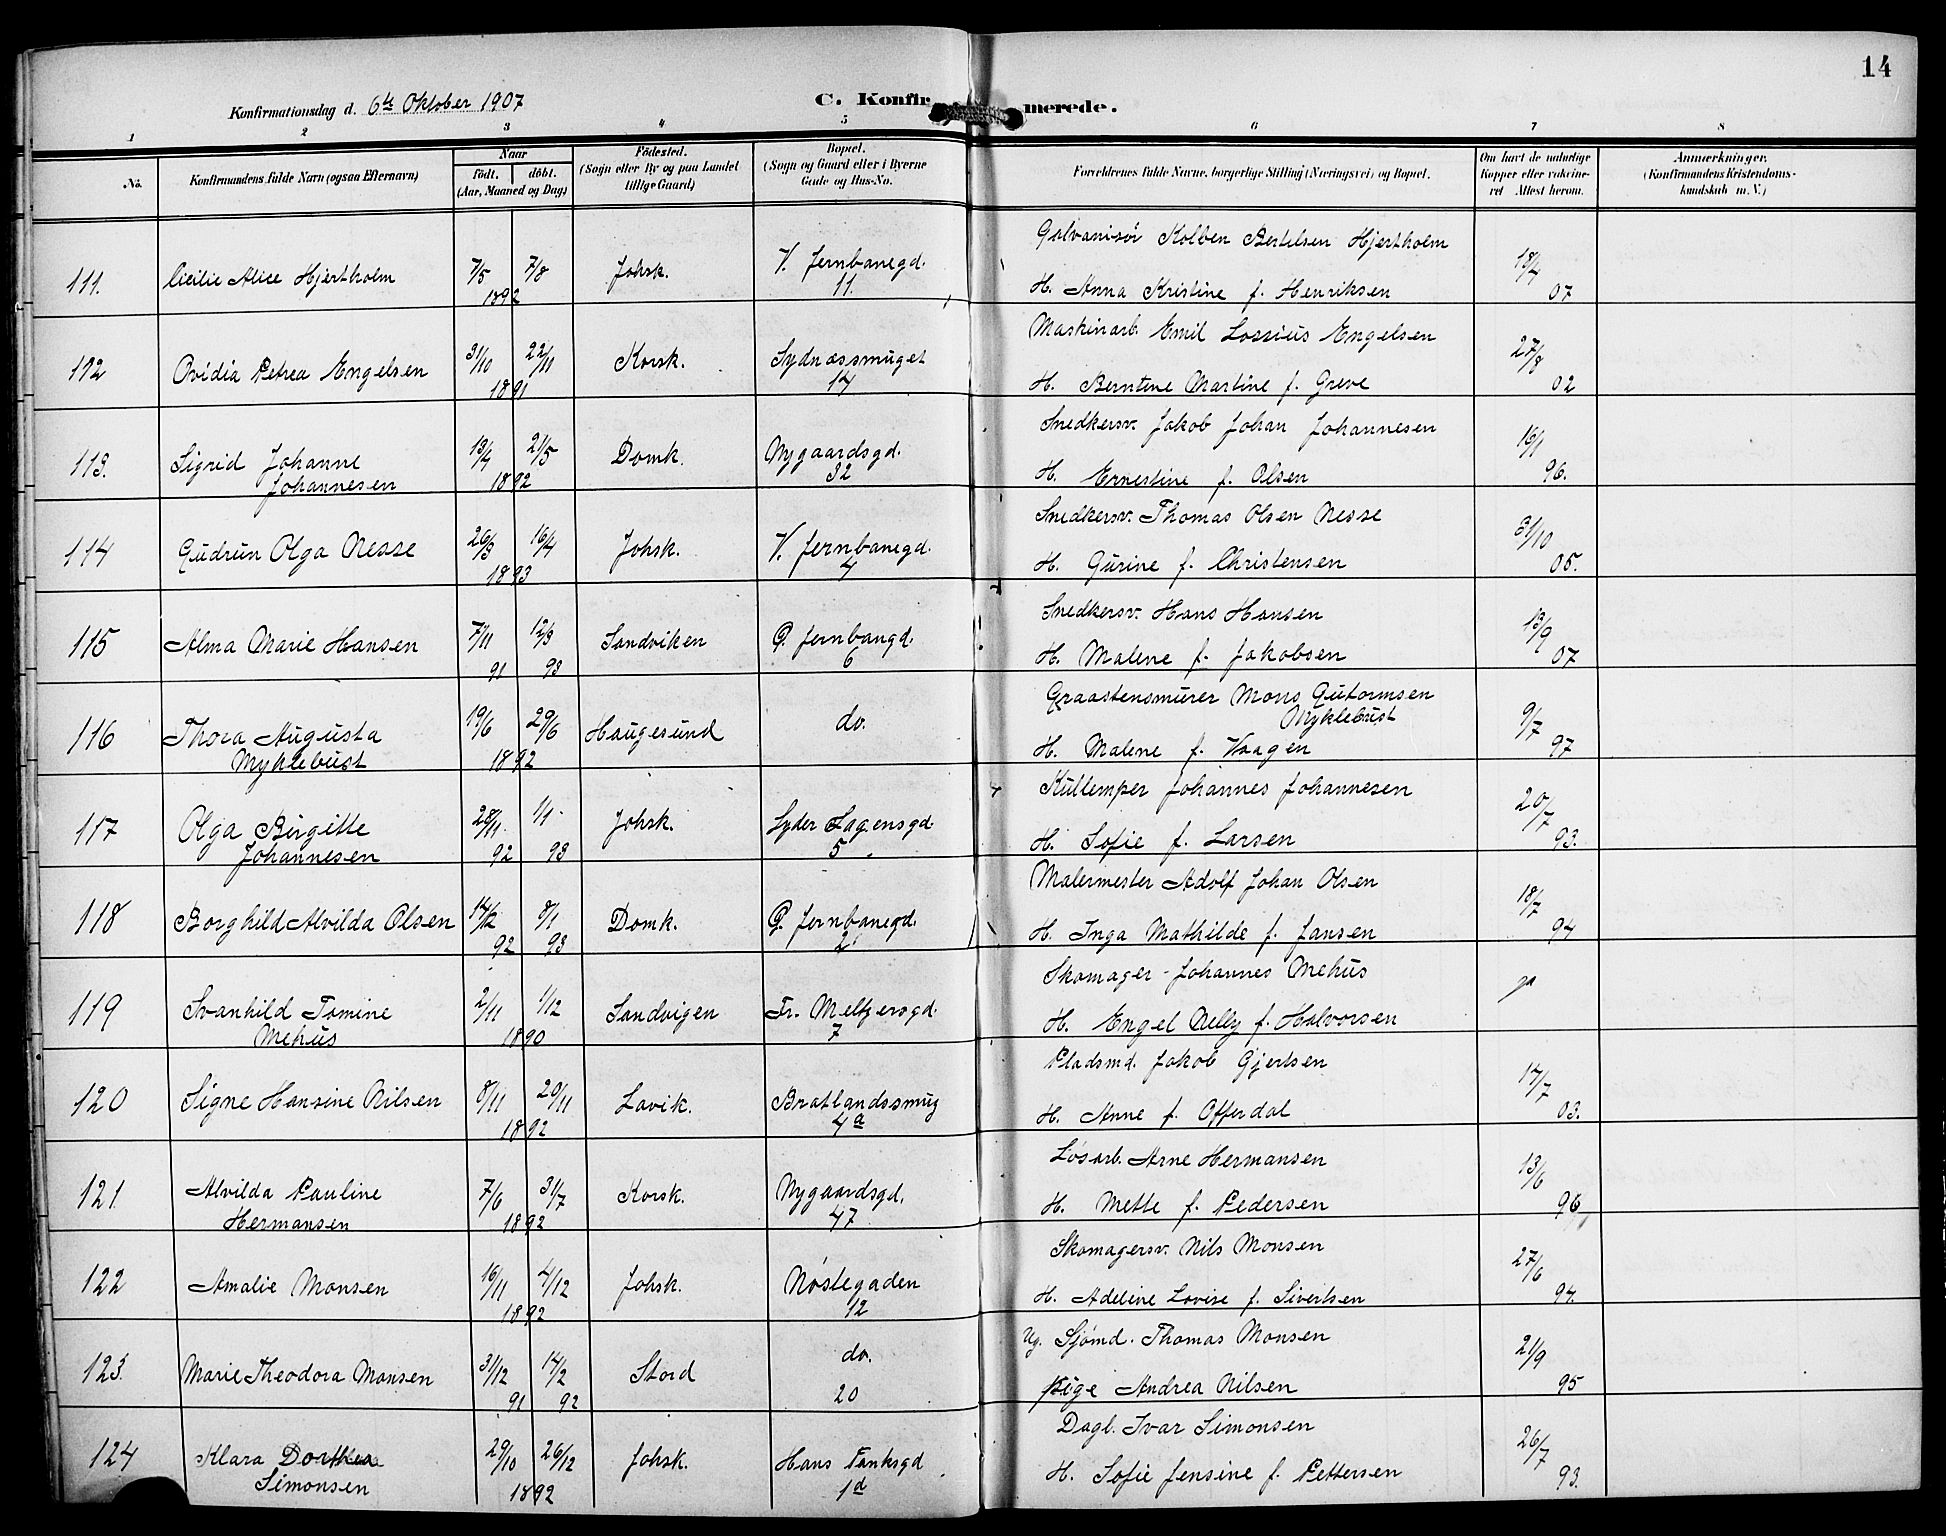 14
Konfirmationsdag d. 6te Oktober 1907 C. Konfirmerede.
1 2 3 4 5 6 7 8
No. Konfirmandens fulde Navn (ogsaa Efternavn) Naar født. døbt. (Aar, Maaned og Dag) Fødested. (Sogn eller By og paa Landet tillige Gaard) Bopæl. (Sogn og Gaard eller i Byerne Gade og Hus-No. Forældrenes fulde Navne, borgerlige Stilling (Næringsvei) og Bopæl. Om havt de naturlige Kopper eller vakcineret Attest herom. Anmærkninger. (Konfirmandens Kristendomskundskab m. V.)
111. Cicilie Alice Hjertholm 7/5 7/8 1892 Johsk. V. Jernbanegd. 11. Galvanisør Kolben Bertelsen Hjertholm
H. Anna Kristine f. Henriksen 18/4 07
112 Ovidia Petrea Engelsen 31/10 22/11 1891 Korsk. Sydnæssmuget 14 Maskinarb. Emil Lossius Engelsen
H. Berntine Martine f. Greve 27/8 02
113. Sigrid Johanne Johannesen 13/4 21/5 1892 Domk. Nygaardsgd. 32 Snedkersv. Jakob Johan Johannesen
H. Ernestine f. Olsen 16/1 96.
114 Gudrun Olga Nesse 26/3 16/4 1893 Johsk. V. Jernbanegd. 4 Snedkersv. Thomas Olsen Nesse
H. Gurine f. Christensen 31/10 05.
115 Alma Marie Hansen 7/11 91 12/3 93 Sandviken Ø. Jernbangd. 6 Snedkersv. Hans Hansen
H. Malene f. Jakobsen 13/9 07
116 Thora Augusta Myklebust 19/6 29/6 1892 Haugesund do. Graastensmurer Mons Gutormsen Myklebust
H. Malene f. Vaagen 9/7 97
117 Olga Birgitte Johannesen 28/11. 92 1/1. 93 Johsk. Lyder Sagensgd. 5 Kullemper Johannes Johannesen
H. Sofie f. Larsen 20/7 93.
118 Borghild Alvilda Olsen 14/12 92 8/1 93 Domk. Ø. Jernbanegd. 2 Malermester Adolf Johan Olsen
H. Inga Mathilde f. Jansen 18/7 94
119 Svanhild Tomine Mehus 2/11 1/12 1890 Sandvigen Fr. Meltzersgd. 7 Skomager Johannes Mehus
H. Engel Nelly f. Halvorsen ja
120 Signe Hansine Nilsen 8/11 20/11 1892 Lavik. Bratlandssmug 4a Pladsmd. Jakob Gjertsen
H. Anne f. Offerdal 17/7 03.
121. Alvilda Pauline Hermansen 7/6 31/7 1892 Korsk. Nygaardsgd. 47 Løsarb. Arne Hermansen
H. Mette f. Pedersen 13/6 96
122 Amalie Monsen 16/11 4/12 1892 Johsk. Nøstegaden 12 Skomagersv. Nils Monsen
H. Adeline Lovise f. Sivertsen 27/6 94.
123. Marie Theodora Monsen 31/12 91 14/2 92 Stord do. 20 Ug. Sjømd. Thomas Monsen
Pige Andrea Nilsen 21/9 95
124 Klara Dorthea Simonsen 29/10 26/12 1892 Johsk. Hans Tanksgd 1d Dagl. Ivar Simonsen
H. Sofie Jensine f. Pettersen 26/7 93.